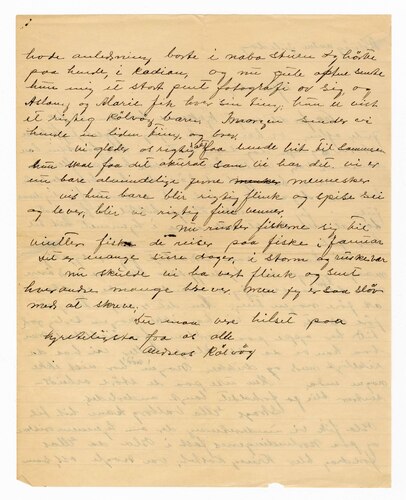 hade anledning borte i nabo stuen og hörte
paa hende, i Radioen, og nu jule aften sente
hun mig et stort pent fotografi av sig og
Aslaug og Marie fik hver sin ting, hun er vist
et rigtig Rölvåg barn. Imorgen sender vi
hende en liden ting, og brev.
vi gleder os rigtig til at faa hende hit til sammen
hun skal faa det akurat som vi har det, vi er
jo bare almindelige jevne mennesker
vis hun bare blir rigtig flink og spise sei
og lever, blir vi rigtig fine venner.
nu ruster fiskerne sig til
vinter fiske de reiser paa fiske i januar
det er mange sure dager, i storm og
nu skulde vi ha vert flink og sent
hverandre mange brever. Men jeg er saa slöv
med at skrive.
Du maa vere hilset paa
kjerteligsta fra os alle
Andreas Rölvåg